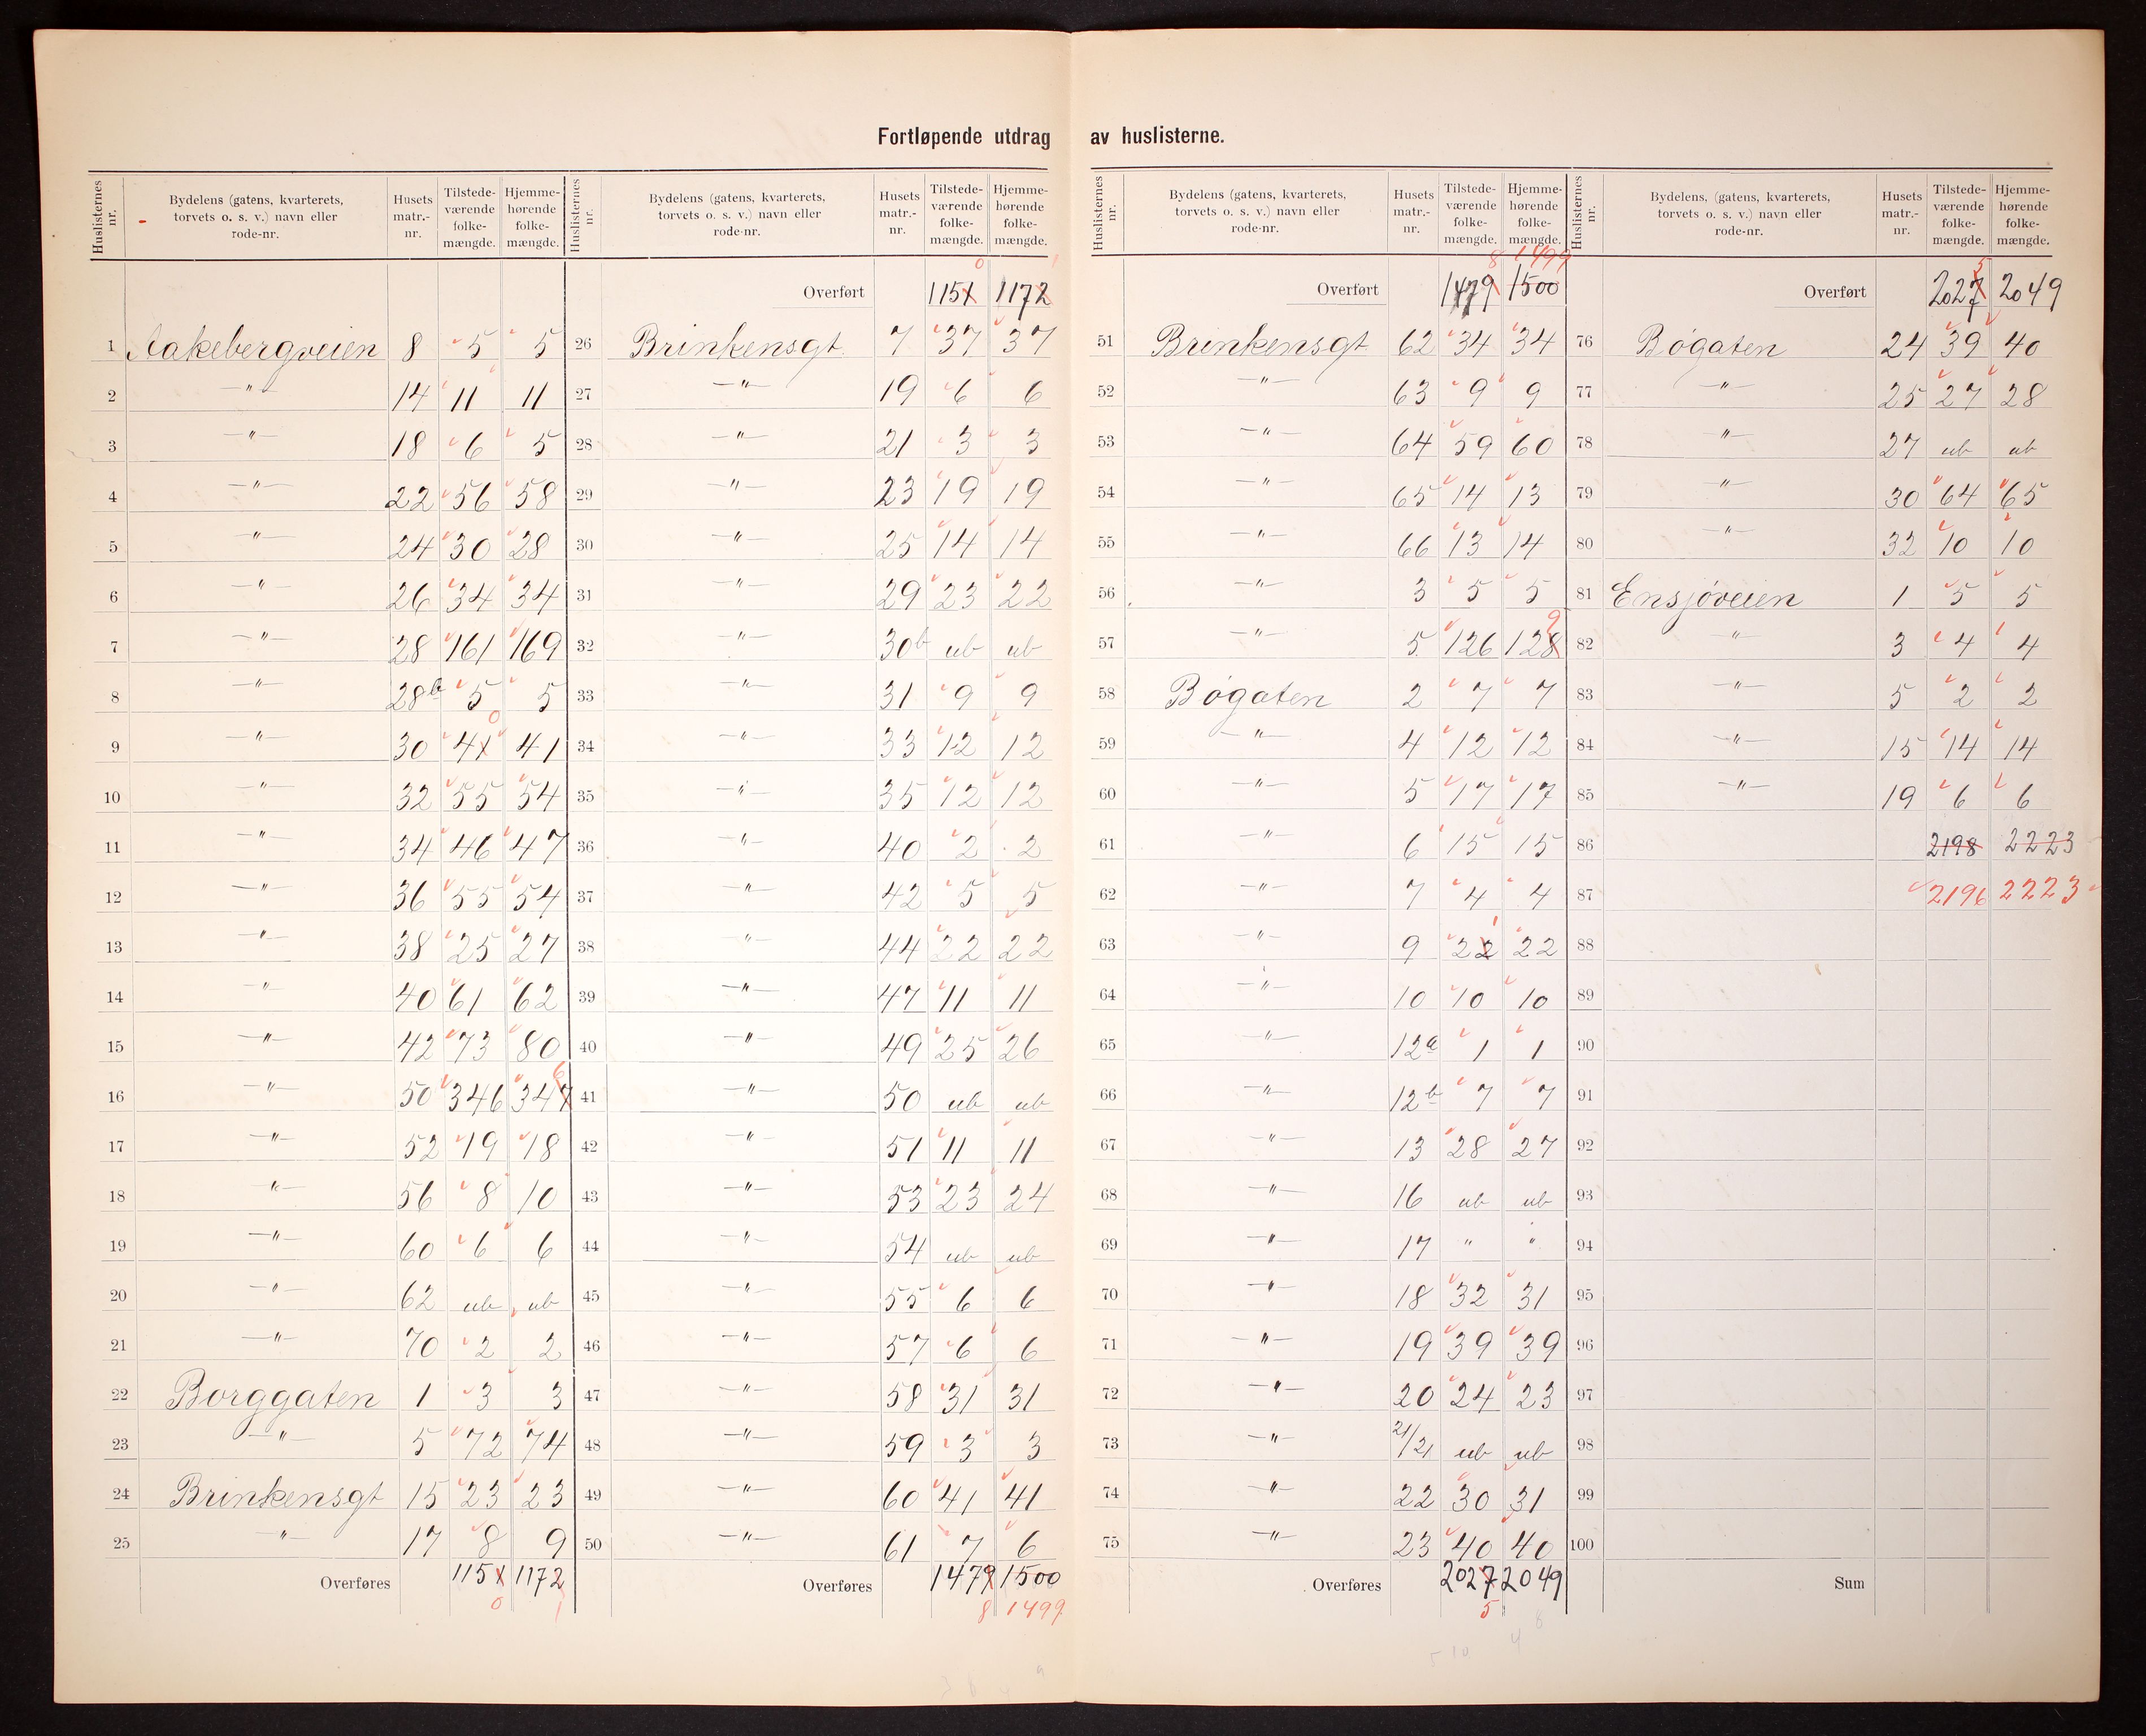 Fortløpende utdrag av huslisterne.
Huslisternes nr. | Bydelens (gatens, kvarterets, torvets o. s. v.) navn eller rode-nr. | Husets matr.-nr. | Tilstede-værende folke-mængde. | Hjemme-hørende folke-mængde.
1 Aakebergveien 8 5 5
2 —"— 14 11 11
3 —"— 18 6 5
4 —"— 22 56 58
5 —"— 24 30 28
6 —"— 26 34 34
7 —"— 28 161 169
8 —"— 28b 5 5
9 —"— 30 41 0 41
10 —"— 32 55 54
11 —"— 34 46 47
12 —"— 36 55 54
13 —"— 38 25 27
14 —"— 40 61 62
15 —"— 42 73 80
16 —"— 50 346 347 6
17 —"— 52 19 18
18 —"— 56 8 10
19 —"— 60 6 6
20 —"— 62 ub ub
21 —"— 70 2 2
22 Borggaten 1 3 3
23 —"— 5 72 74
24 Brinkensgt 15 23 23
25 —"— 17 8 9
Overføres 1151 1172
0 1
Huslisternes nr. | Bydelens (gatens, kvarterets, torvets o. s. v.) navn eller rode-nr. | Husets matr.-nr. | Tilstede-værende folke-mængde. | Hjemme-hørende folke-mængde.
0 1
Overført 1151 1172
26 Brinkensgt. 7 37 37
27 —"— 19 6 6
28 —"— 21 3 3
29 —"— 23 19 19
30 —"— 25 14 14
31 —"— 29 23 22
32 —"— 30b ub ub
33 —"— 31 9 9
34 —"— 33 12 12
35 —"— 35 12 12
36 —"— 40 2 2
37 —"— 42 5 5
38 —"— 44 22 22
39 —"— 47 11 11
40 —"— 49 25 26
41 —"— 50 ub ub
42 —"— 51 11 11
43 —"— 53 23 24
44 —"— 54 ub ub
45 —"— 55 6 6
46 —"— 57 6 6
47 —"— 58 31 31
48 —"— 59 3 3
49 —"— 60 41 41
50 —"— 61 7 6
Overføres 1479 1500
8 1499
Huslisternes nr. | Bydelens (gatens, kvarterets, torvets o. s. v.) navn eller rode-nr. | Husets matr.-nr. | Tilstede-værende folke-mængde. | Hjemme-hørende folke-mængde.
8 1499
Overført 1479 1500
51 Brinkensgt 62 34 34
52 —"— 63 9 9
53 —"— 64 59 60
54 —"— 65 14 13
55 —"— 66 13 14
56 —"— 3 5 5
57 —"— 5 126 128 9
58 Bøgaten 2 7 7
59 —"— 4 12 12
60 —"— 5 17 17
61 —"— 6 15 15
62 —"— 7 4 4
63 —"— 9 22 1 22
64 —"— 10 10 10
65 —"— 12a 1 1
66 —"— 12b 7 7
67 —"— 13 28 27
68 —"— 16 ub ub
69 —"— 17 " "
70 —"— 18 32 31
71 —"— 19 39 39
72 —"— 20 24 23
73 —"— 21/21 ub ub
74 —"— 22 30 31
75 —"— 23 40 40
Overføres 2027 2049
5
Huslisternes nr. | Bydelens, (gatens, kvarterets, torvets o. s. v.) navn eller rode-nr. | Husets matr.-nr. | Tilstede-værende folke-mængde. | Hjemme-hørende folke-mængde.
5
Overført 2027 2049
76 Bøgaten 24 39 40
77 —"— 25 27 28
78 —"— 27 ub ub
79 —"— 30 64 65
80 —"— 32 10 10
81 Ensjøveien 1 5 5
82 —"— 3 4 4
83 —"— 5 2 2
84 —"— 15 14 14
85 —"— 19 6 6
86 2198 2223
87 2196 2223
88
89
90
91
92
93
94
95
96
97
98
99
100
Sum